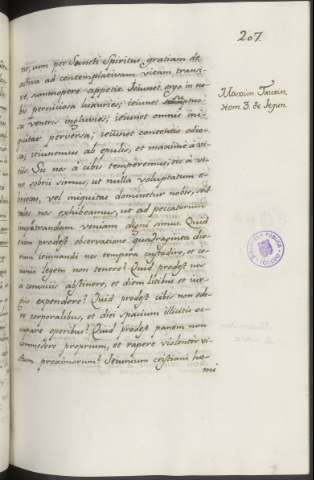 207
re, um per Sancti Spiritus gratiam de
activa ad contemplativam vitam transi-
re, summopere appetit. Jeiunet ergo in no-
bis perniciosa luxuries; ieiunet
a ventris ingluvies; ieiunet omnis im-
pietas perversa; ieiunet contentio odio-
sa; ieiunemus ab epulis, et maxime a vi-
tiis. Sic nos a cibis temperemus, sic a vi-
no sobrii simus, ut nulla voluptatum
vel iniquitas dominetur nobis, sed
nos exhibeamus, ut ad peccatorum
impetrandam veniam digni simus. Quid
enim prodest observatione quadraginta die-
rum ieiunandi nec tempora custodire, et ie-
iunii legem non tenere? Quid prodest
a convivio abstinere, et diem litibus et iur-
gio expendere? Quid prodest cibis non ede-
re corporalibus, et diei spacium illicitis oc-
cupare operibus? Quid prodest panem non
comedere proprium, et rapere violenter vi-
ctum proximorum? Jeiunium cristiani ho-
mi
Maxim. Taurin.
Hom 3. de Jejun